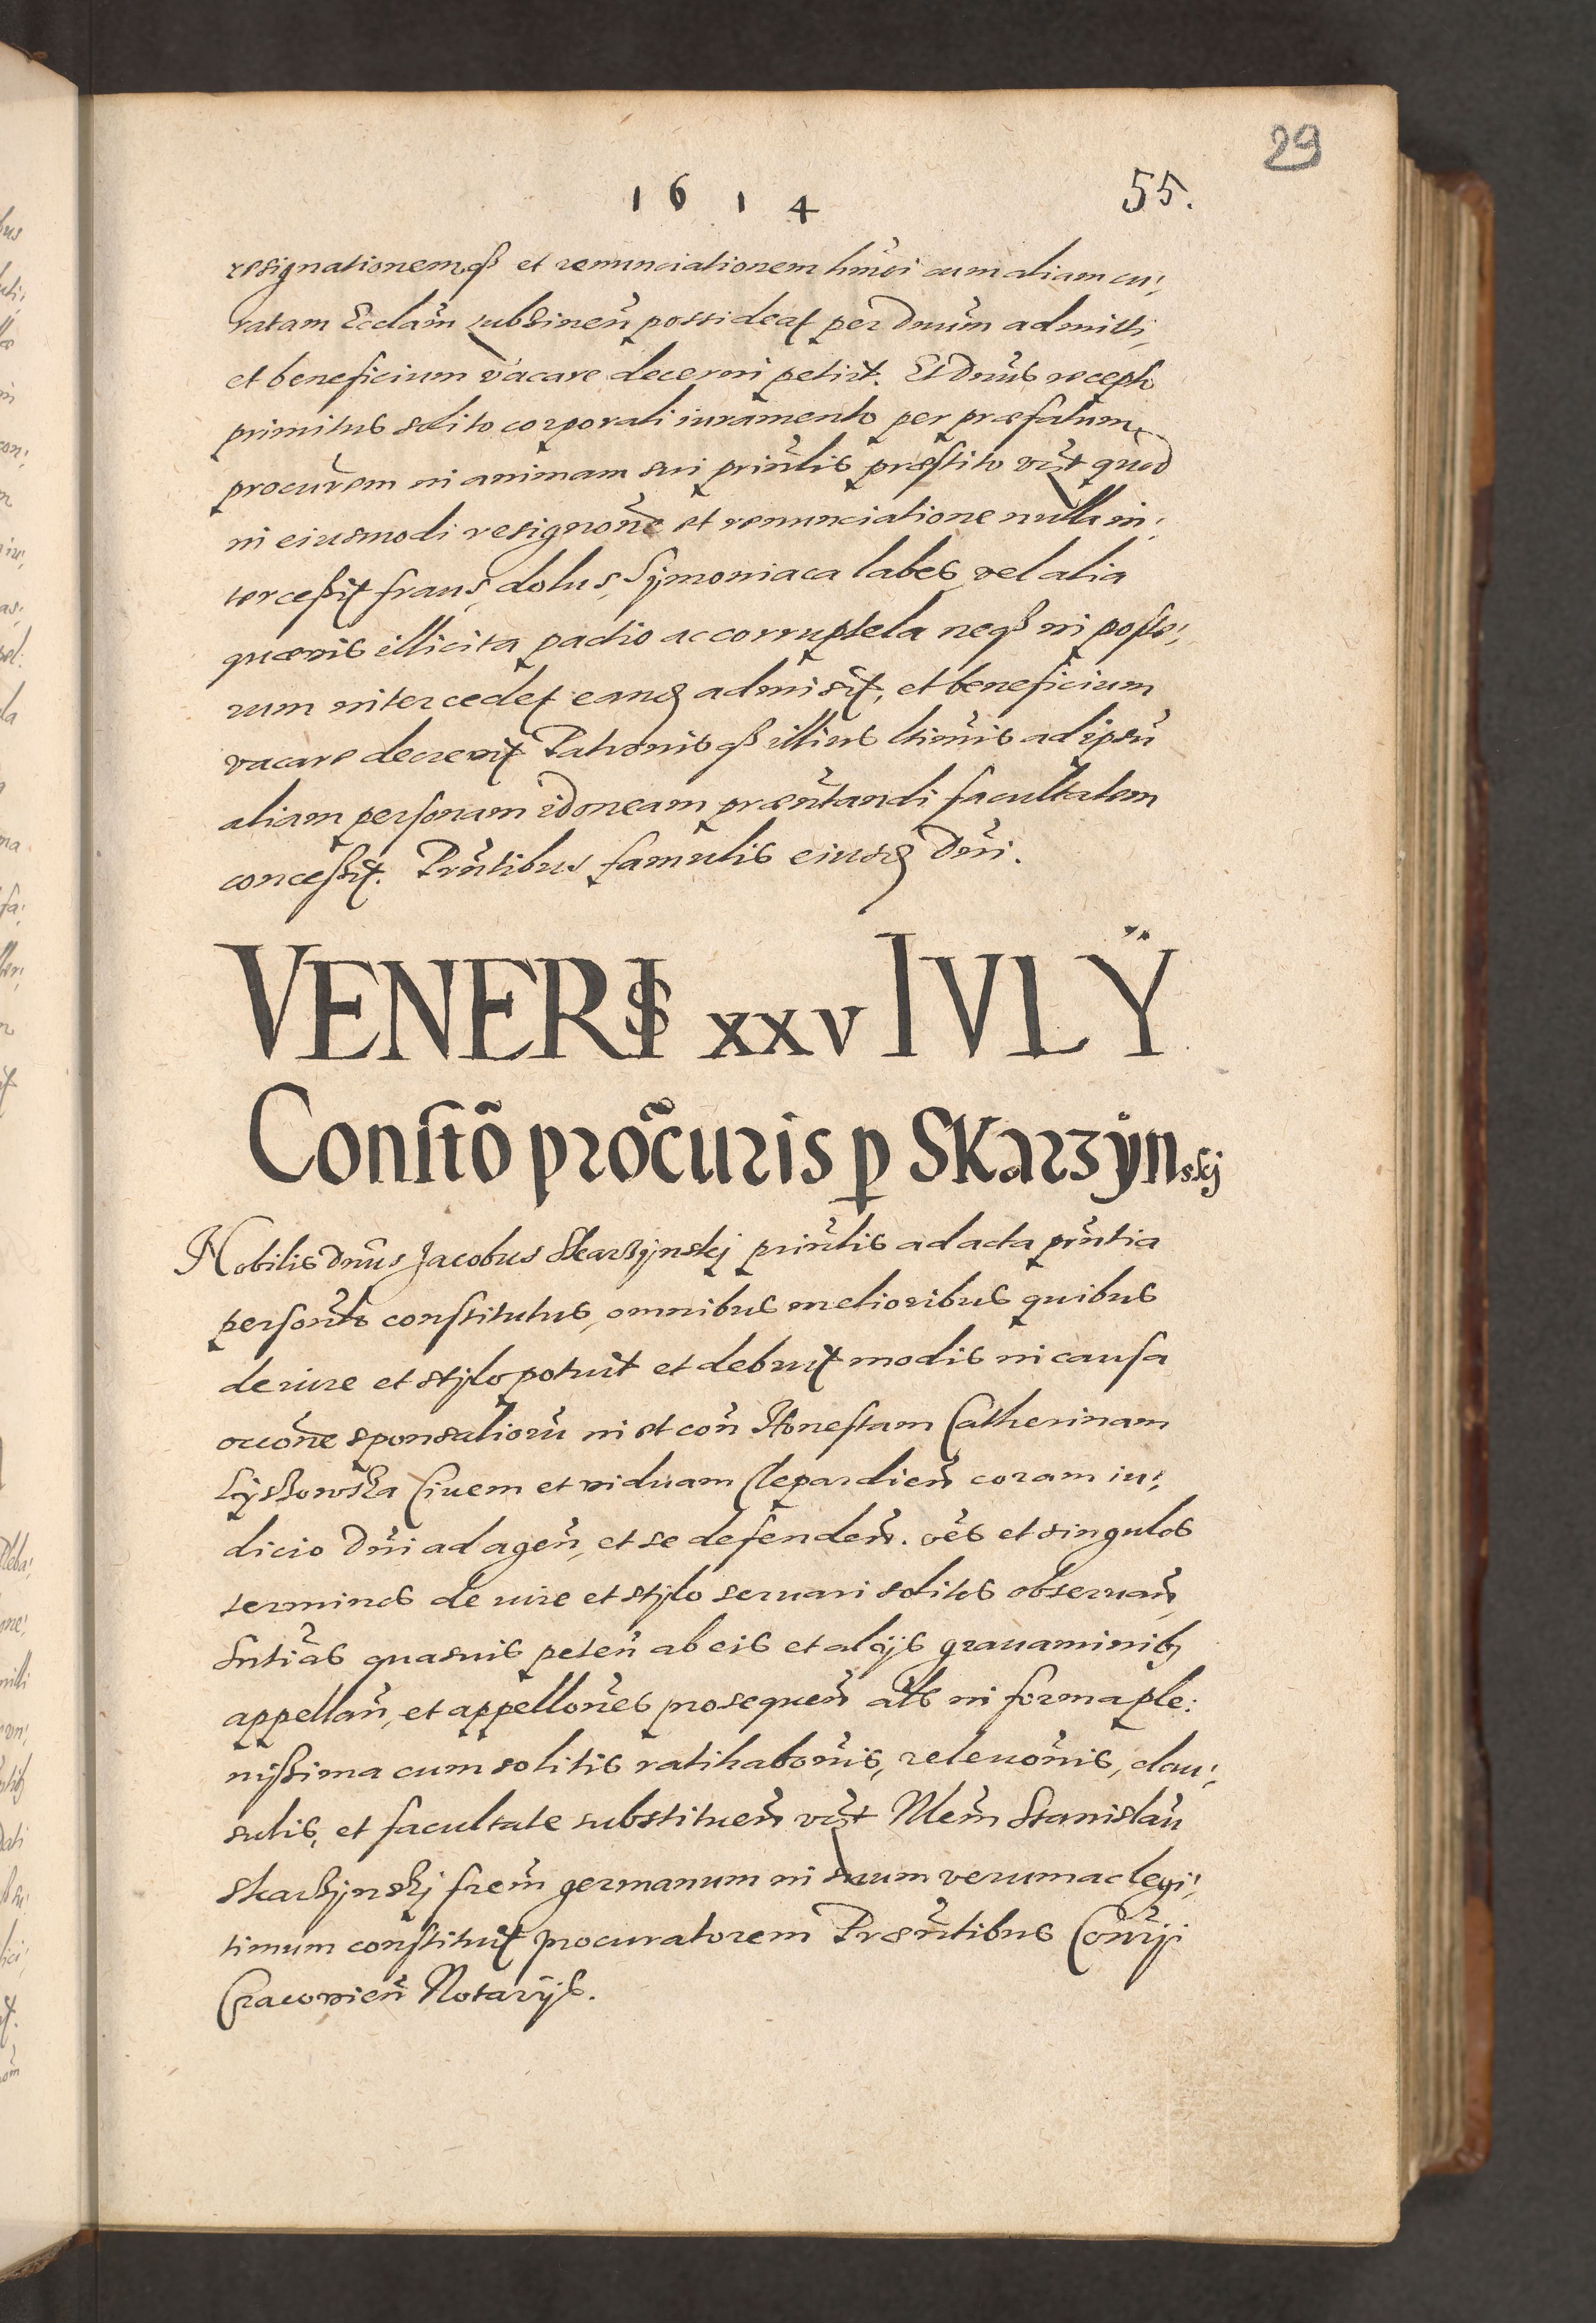 29
1614 55.
resignationemq3 et renunciationem hm̃oi cum aliam cu¦
ratam Eccl̃am subsinen̄ possideat per Dnūm admitti,
et beneficium vacare decerni petijt. Et Dnūs recepto
primitus solito corporali iuramento per præfatum
procur̃em in animam sui prin̄lis præstito vz̃t quod
in eiusmodi resignoñe et renunciatione nulla in¦
tercessit fraus, dolus, Sÿmoniaca labes vel alia
quævis illicita pactio ac corruptela neq3 in poste¦
rum intercedet eanđ admisit, et beneficium
vacare decrevit Patronisq3 illius ltim̃is ad ipsū
aliam personam idoneam præn̄tandi facultatem
concessit. Prn̄tibus famulis eiusđ Dnī.
VENERIS xxv IVLŸ
Constõ procũris p SKarzÿnskj
Nobilis Dnūs Jacobus Skarzÿnskj prin̄lis ad acta prn̄tia
person̄lr constitutus, omnibus melioribus quibus
de iure et stÿlo potuit et debuit modis in causa
occōne sponsaliorū in et con̄ Honestam Catherinam
Lyszowska Civem et viduam Clepardien̄ coram iu¦
dicio Dnī ad agen̄, et se defenden̄. oẽs et singulos
terminos de iure et stÿlo servari solitos observan̄,
Sntĩas quasvis peten̄ ab eis et alijs gravaminib3
appellan̄, et appellōnes prosequen̄ al̃s in forma ple¦
nissima cum solitis ratihabōnis, relevōnis, clau¦
sulis, et facultate substituen̄ vz̃t Nlem̃ Stanislaū
Skarzÿnskj frem̃ germanum in suum verum ac legi¦
timum constituit procuratorem Præsn̄tibus Con̄rij
Cracovien̄ Notarÿs.